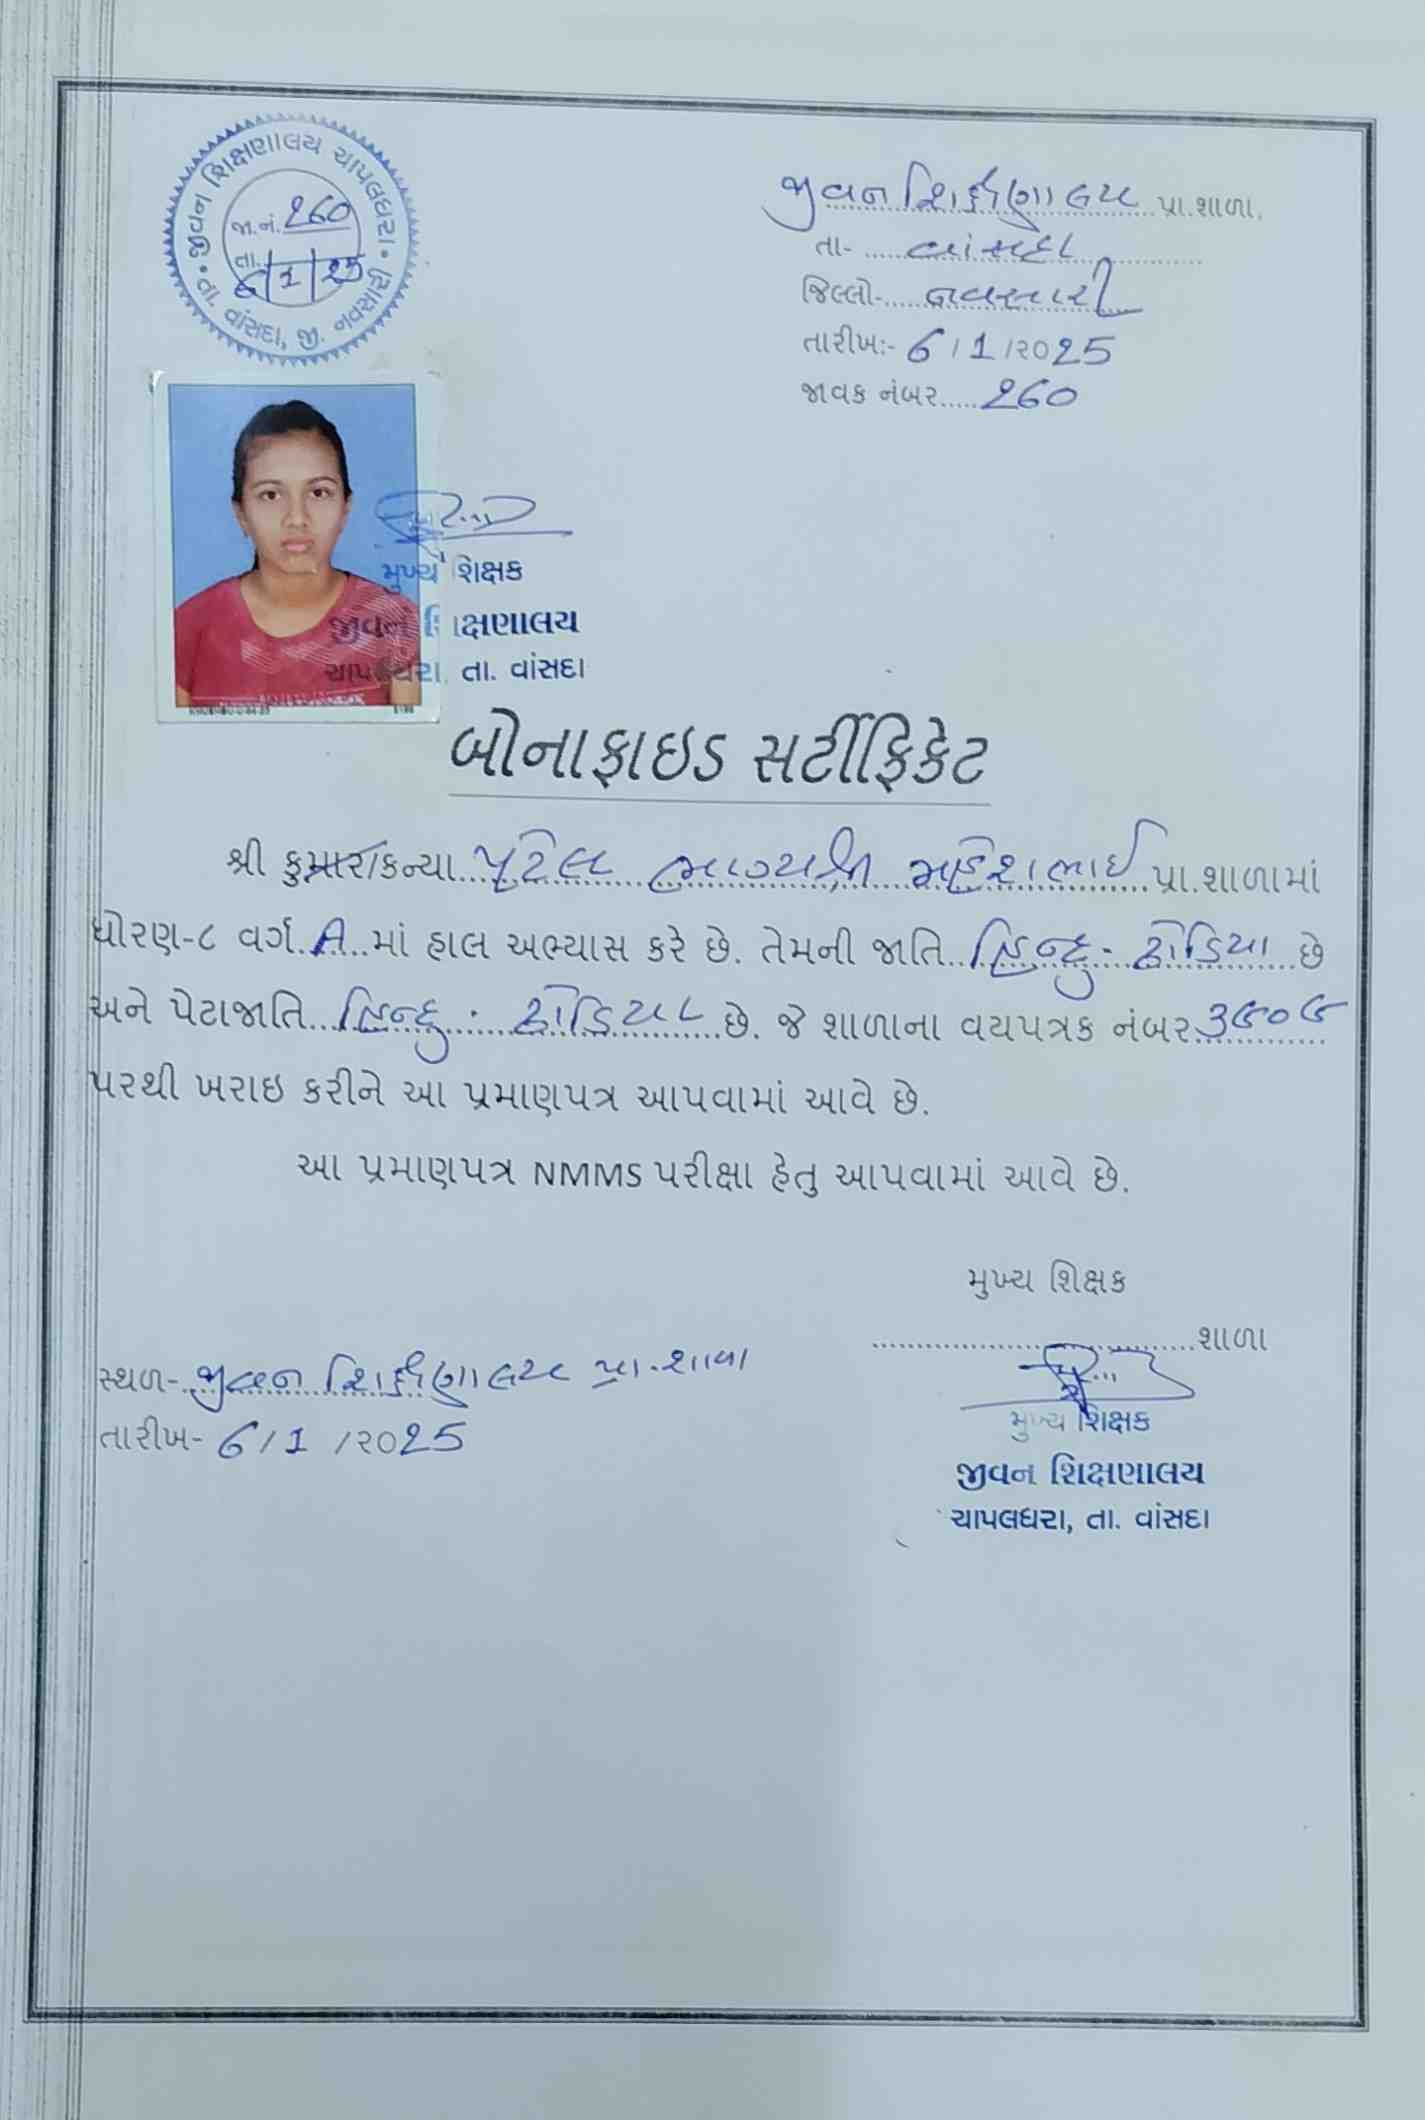 જીવન શિક્ષણાલય ચાપલધરા
તા. વાંસદા, જી. નવસારી
જા.નં. 260
તા. 6/1/25
જીવન શિક્ષણાલય પ્રા.શાળા.
તા-.....વાંસદા
જિલ્લો-.....નવસારી
તારીખ:- 6/1/૨૦25
જાવક નંબર.....260
મુખ્ય શિક્ષક
જીવન શિક્ષણાલય
ચાપલધરા, તા. વાંસદા
બોનાફાઇડ સર્ટીફિકેટ
શ્રી કુમાર/કન્યા..પટેલ ભાગ્યશ્રી મહેશભાઈ પ્રા.શાળામાં
ધોરણ-૮ વર્ગ.A..માં હાલ અભ્યાસ કરે છે. તેમની જાતિ..હિન્દુ - ઢોડિયા છે
અને પેટાજાતિ...હિન્દુ - ઢોડિયા છે. જે શાળાના વયપત્રક નંબર ૩૯૦૯
પરથી ખરાઇ કરીને આ પ્રમાણપત્ર આપવામાં આવે છે.
આ પ્રમાણપત્ર NMMS પરીક્ષા હેતુ આપવામાં આવે છે.
મુખ્ય શિક્ષક
.....શાળા
સ્થળ-જીવન શિક્ષણાલય પ્રા.શાળા
તારીખ- 6/1/૨૦25
મુખ્ય શિક્ષક
જીવન શિક્ષણાલય
ચાપલધરા, તા. વાંસદા